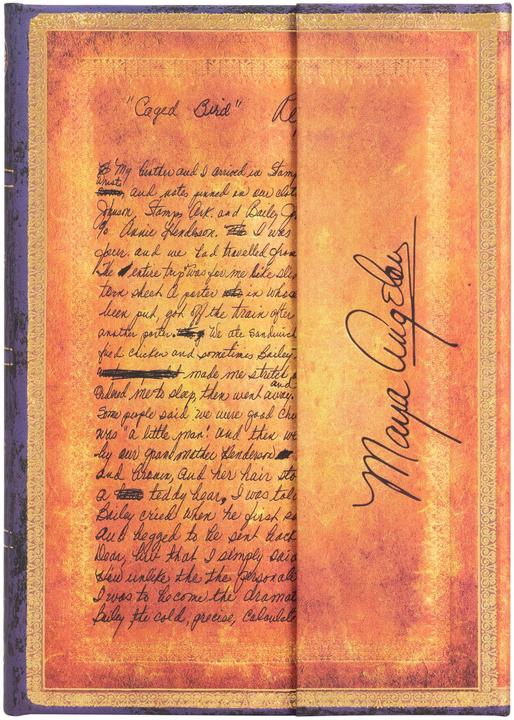 "Caged Bird" Re
My brother and I arrived in Stam
wrists, and notes pinned on our clot
Johnson, Stamps Ark. and Bailey Jo
To Annie Henderson. I was
four, and we had travelled from
the entire trip was for me like slee
torn sheet. A porter in whose
been put, got off the train after
another porter. We ate sandwich
fried chicken and sometimes Bailey
made me stretch o
me to sleep, then went away. and
Some people said we were good Chi
was "a little man" and then we
by our grandmother Henderson
and brown, and her hair sto
a teddy bear. I was told
Bailey cried when he first se
and begged to be sent back
Dear, but that I simply said
How unlike the the personali
I was to become the dramat
Bailey the cold, precise, calculat
Maya Angelou